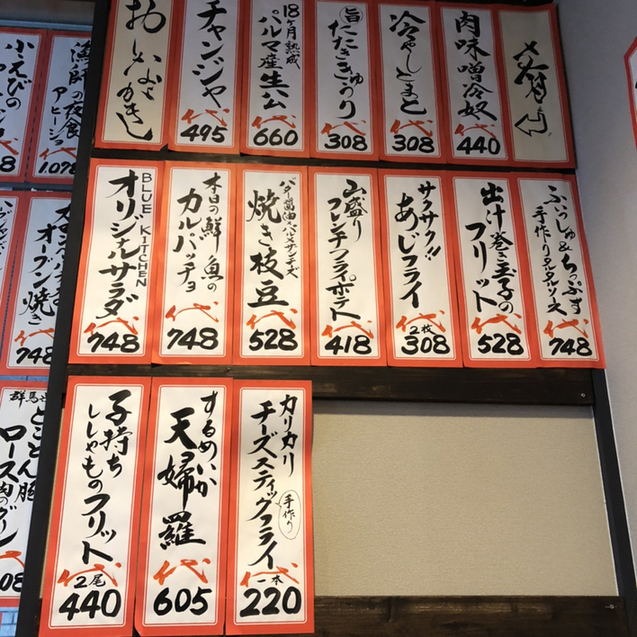 おしながき
チャンジャ
代
495
18ヶ月熟成
パルマ産生ハム
代
660
旨
たたききゅうり
代
308
冷やしとまと
代
308
肉味噌冷奴
代
440
BLUE KITCHEN
オリジナルサラダ
代
748
本日の鮮魚の
カルパッチョ
代
748
バター醤油・パルメザンチーズ
焼き枝豆
代
528
山盛り
フレンチフライポテト
代
418
サクサク!!
あじフライ
代
2枚
308
出汁巻き玉子の
フリット
代
528
ふぃっしゅ&ちっぷす
手作りタルタルソース
代
748
子持ち
ししゃものフリット
代
2尾
440
するめいか
天婦羅
代
605
カリカリ
チーズスティックフライ
手作り
代
一本
220
漁師の夜食
アヒージョ
1078
小えびの
オーブン焼き
748
群馬
とことん豚
ロース肉のグリ